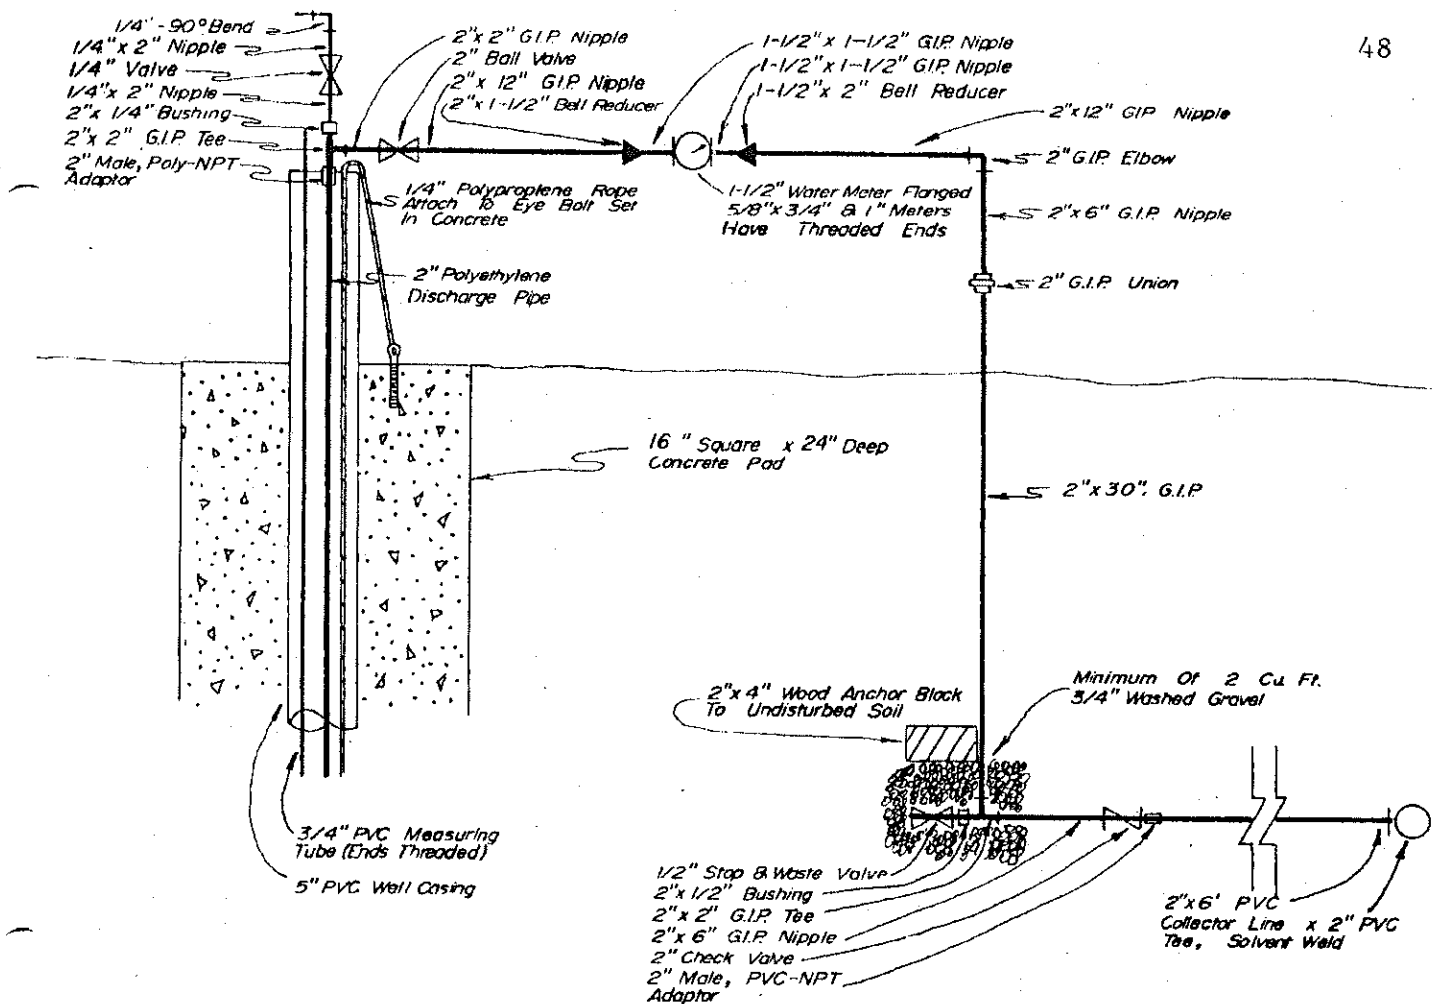 48
1/4" - 90° Bend
1/4" x 2" Nipple
1/4" Valve
1/4" x 2" Nipple
2" x 1/4" Bushing
2" x 2" G.I.P. Tee
2" Male, Poly-NPT
Adaptor
2" x 2" G.I.P. Nipple
2" Ball Valve
2" x 12" G.I.P. Nipple
2" x 1-1/2" Bell Reducer
1-1/2" x 1-1/2" G.I.P. Nipple
1-1/2" x 1-1/2" G.I.P. Nipple
1-1/2" x 2" Bell Reducer
2" x 12" GIP Nipple
2" G.I.P. Elbow
1/4" Polyproplene Rope
Attach To Eye Bolt Set
In Concrete
1-1/2" Water Meter Flanged
5/8" x 3/4" & 1" Meters
Have Threaded Ends
2" x 6" G.I.P. Nipple
2" Polyethylene
Discharge Pipe
2" G.I.P. Union
16" Square x 24" Deep
Concrete Pad
2" x 30". G.I.P
2" x 4" Wood Anchor Block
To Undisturbed Soil
Minimum Of 2 Cu Ft.
3/4" Washed Gravel
3/4" PVC Measuring
Tube (Ends Threaded)
5" PVC Well Casing
1/2" Stop & Waste Valve
2" x 1/2" Bushing
2" x 2" G.I.P. Tee
2" x 6" G.I.P. Nipple
2" Check Valve
2" Male, PVC-NPT
Adaptor
2" x 6' PVC
Collector Line x 2" PVC
Tee, Solvent Weld